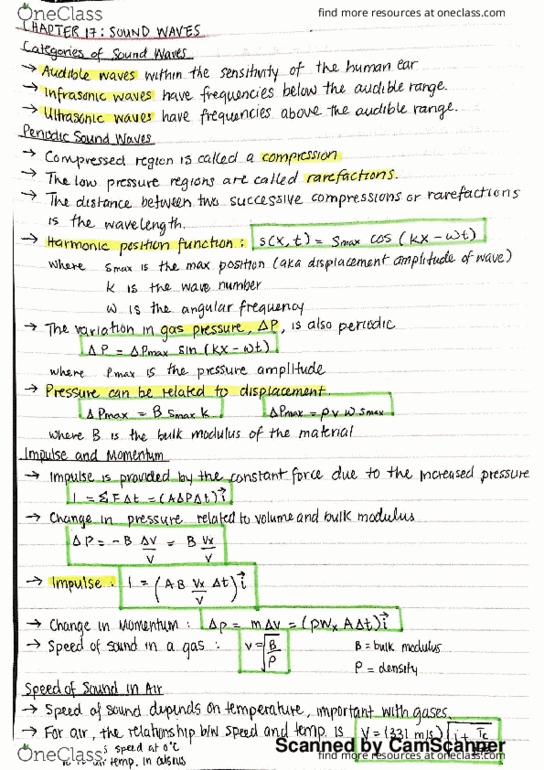 OneClass
find more resources at oneclass.com
CHAPTER 17: SOUND WAVES
Categories of Sound Waves
→ Audible waves within the sensitivity of the human ear
→ Infrasonic waves have frequencies below the audible range.
→ Ultrasonic waves have frequencies above the audible range.
Periodic Sound Waves
→ Compressed region is called a compression
→ The low pressure regions are called rarefactions.
→ The distance between two successive compressions or rarefactions
is the wavelength.
→ Harmonic position function: s(x,t) = smax cos (kx - ωt)
where smax is the max position (aka displacement amplitude of wave)
k is the wave number
ω is the angular frequency
→ The variation in gas pressure, ΔP, is also periodic
ΔP = ΔPmax sin (kx - ωt)
where Pmax is the pressure amplitude
→ Pressure can be related to displacement.
ΔPmax = B smax k ΔPmax = ρ v ω smax
where B is the bulk modulus of the material
Impulse and Momentum
→ Impulse is provided by the constant force due to the increased pressure
I = ΣFΔt = (AΔPΔt) î
→ Change in pressure related to volume and bulk modulus
ΔP = -B ΔV/V = B Vx/V
→ Impulse: I = (AB Vx/V Δt) î
→ Change in Momentum: Δp = mΔv = (ρVVx AΔt) î
→ Speed of sound in a gas: v = √B/ρ B = bulk modulus
ρ = density
Speed of Sound in Air
→ Speed of sound depends on temperature, important with gases.
→ For air, the relationship b/w speed and temp. is V = (331 m/s) √1 + Tc
Scanned by CamScanner
speed at 0°C
OneClass
air temp. in celsius
find more resources at oneclass.com